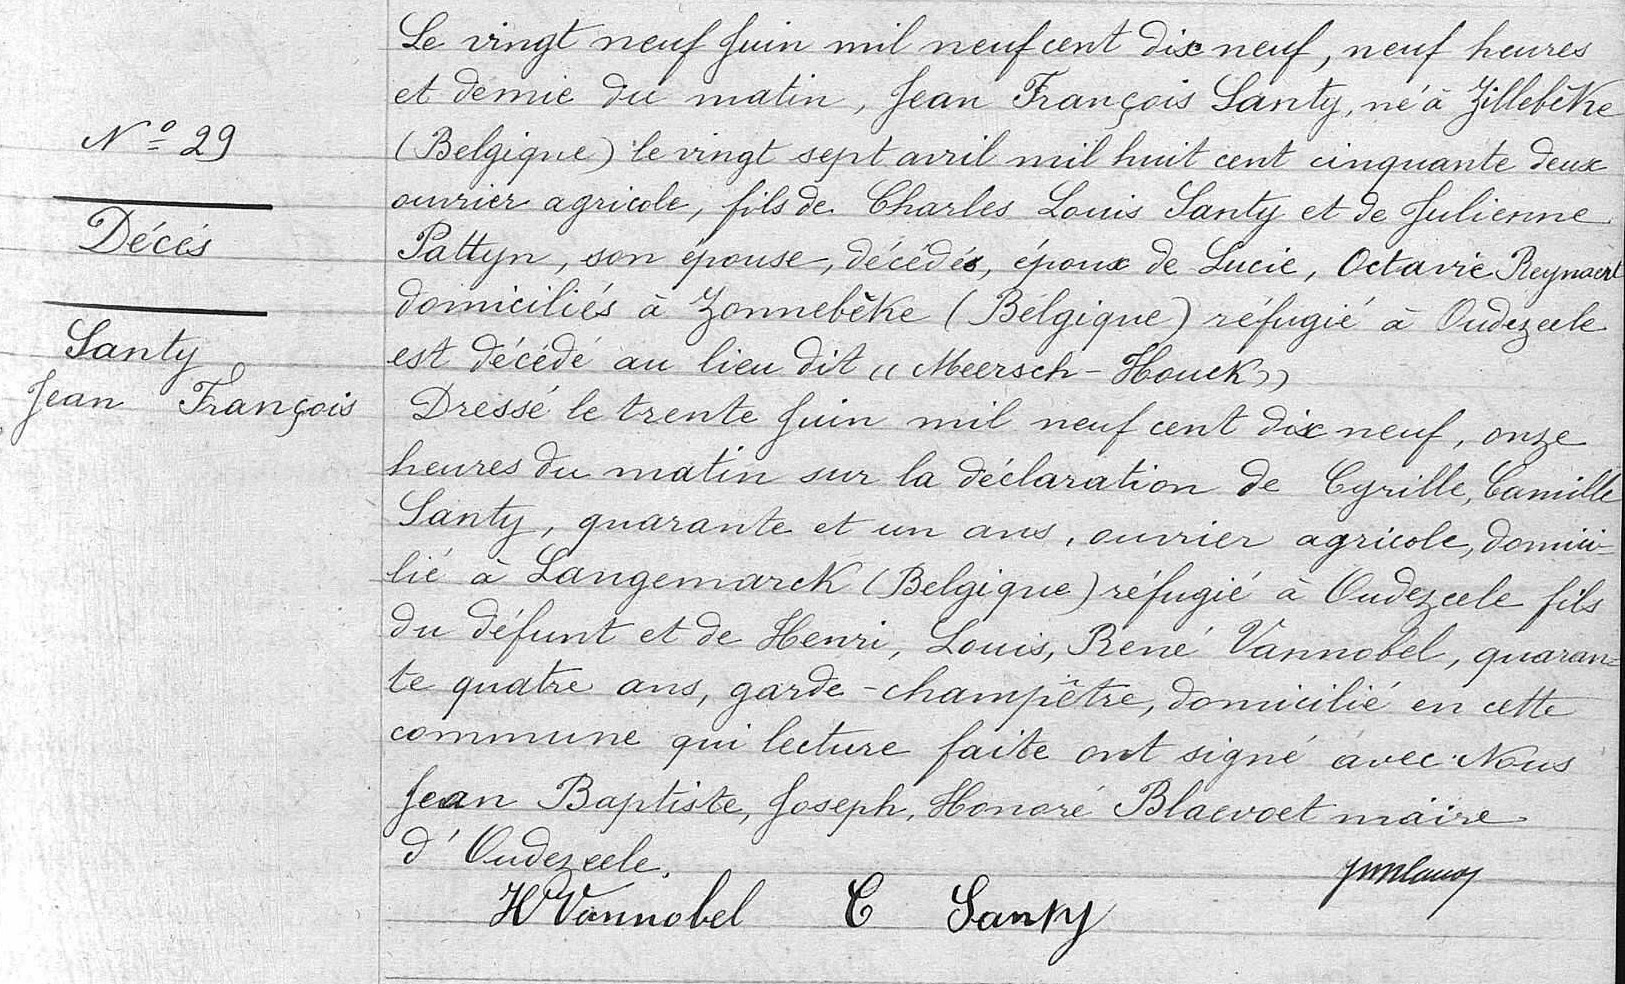 N° 29
Décès
Santy
Jean François
Le vingt neuf Juin mil neuf cent dix neuf, neuf heures
et demie du matin, Jean François Santy, né à Zillebèke
(Belgique) le vingt sept avril mil huit cent cinquante deux
ouvrier agricole, fils de Charles Louis Santy et de Julienne
Pattyn, son épouse, décédés, époux de Lucie, Octavie Reynaert
domiciliés à Zonnebèke (Belgique) réfugié à Oudezeele
est décédé au lieu dit "Meersch-Houck"
Dressé le trente Juin mil neuf cent dix neuf, onze
heures du matin sur la déclaration de Cyrille, Camille
Santy, quarante et un ans, ouvrier agricole, domici-
lié à Langemarck (Belgique) réfugié à Oudezeele fils
du défunt et de Henri, Louis, René Vannobel, quaran=
te quatre ans, garde-champêtre, domicilié en cette
commune qui lecture faite ont signé avec Nous
Jean Baptiste, Joseph, Honoré Blaevoet maire
d'Oudezeele.
H Vannobel C Santy